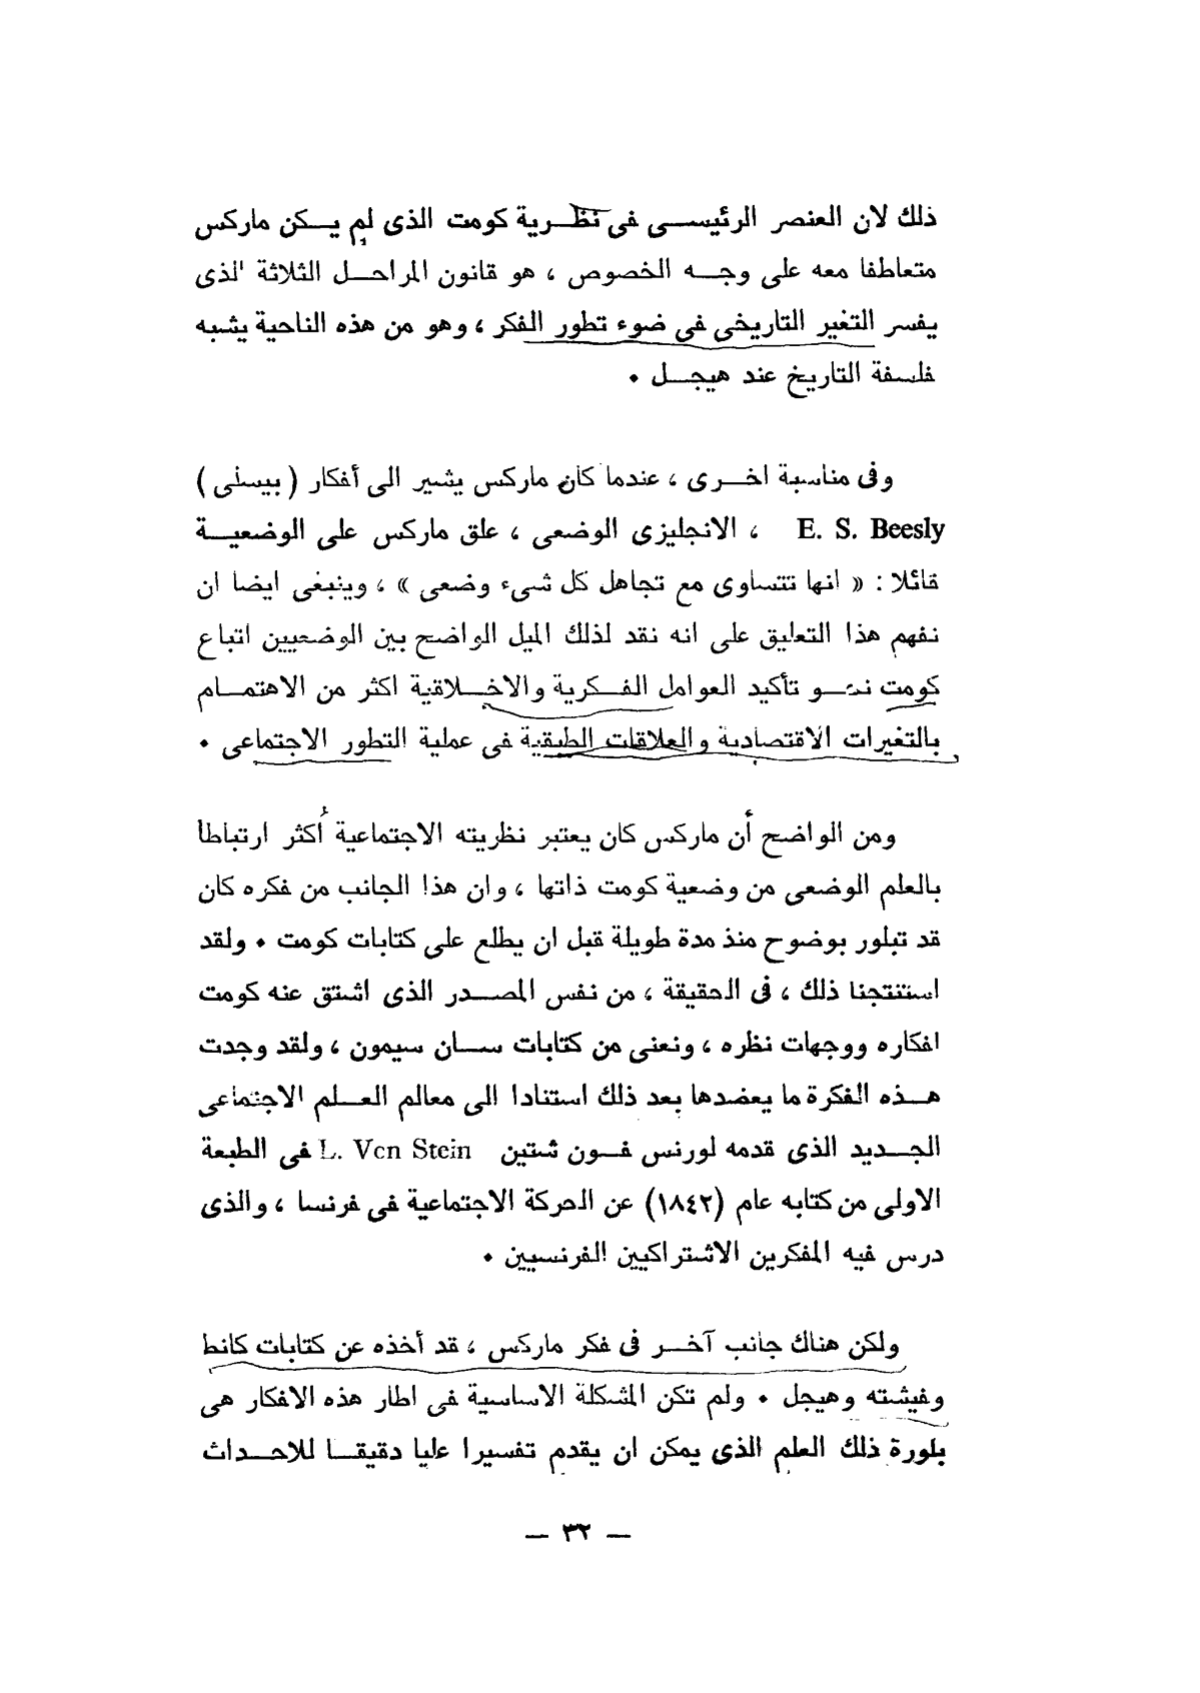 ذلك لان العنصر الرئيسى فى نظرية كومت الذى لم يكن ماركس
متعاطفا معه على وجه الخصوص ، هو قانون المراحل الثلاثة الذى
يفسر التغير التاريخى فى ضوء تطور الفكر ، وهو من هذه الناحية يشبه
فلسفة التاريخ عند هيجل ٠
وفى مناسبة اخرى ، عندما كان ماركس يشير الى أفكار ( بيسلى )
E. S. Beesly ، الانجليزى الوضعى ، علق ماركس على الوضعية
قائلا : « انها تتساوى مع تجاهل كل شىء وضعى » ، وينبغى ايضا ان
نفهم هذا التعليق على انه نقد لذلك الميل الواضح بين الوضعيين اتباع
كومت نحو تأكيد العوامل الفكرية والاخلاقية اكثر من الاهتمام
بالتغيرات الاقتصادية والعلاقات الطبقية فى عملية التطور الاجتماعى ٠
ومن الواضح أن ماركس كان يعتبر نظريته الاجتماعية أكثر ارتباطا
بالعلم الوضعى من وضعية كومت ذاتها ، وان هذا الجانب من فكره كان
قد تبلور بوضوح منذ مدة طويلة قبل ان يطلع على كتابات كومت ٠ ولقد
استنتجنا ذلك ، فى الحقيقة ، من نفس المصدر الذى اشتق عنه كومت
افكاره ووجهات نظره ، ونعنى من كتابات سان سيمون ، ولقد وجدت
هذه الفكرة ما يعضدها بعد ذلك استنادا الى معالم العلم الاجتماعى
الجديد الذى قدمه لورنس فون شتين L. Von Stein فى الطبعة
الاولى من كتابه عام (١٨٤٢) عن الحركة الاجتماعية فى فرنسا ، والذى
درس فيه المفكرين الاشتراكيين الفرنسيين ٠
ولكن هناك جانب آخر فى فكر ماركس ، قد أخذه عن كتابات كانط
وفيشته وهيجل ٠ ولم تكن المشكلة الاساسية فى اطار هذه الافكار هى
بلورة ذلك العلم الذى يمكن ان يقدم تفسيرا عليا دقيقا للاحداث
— ٣٢ —